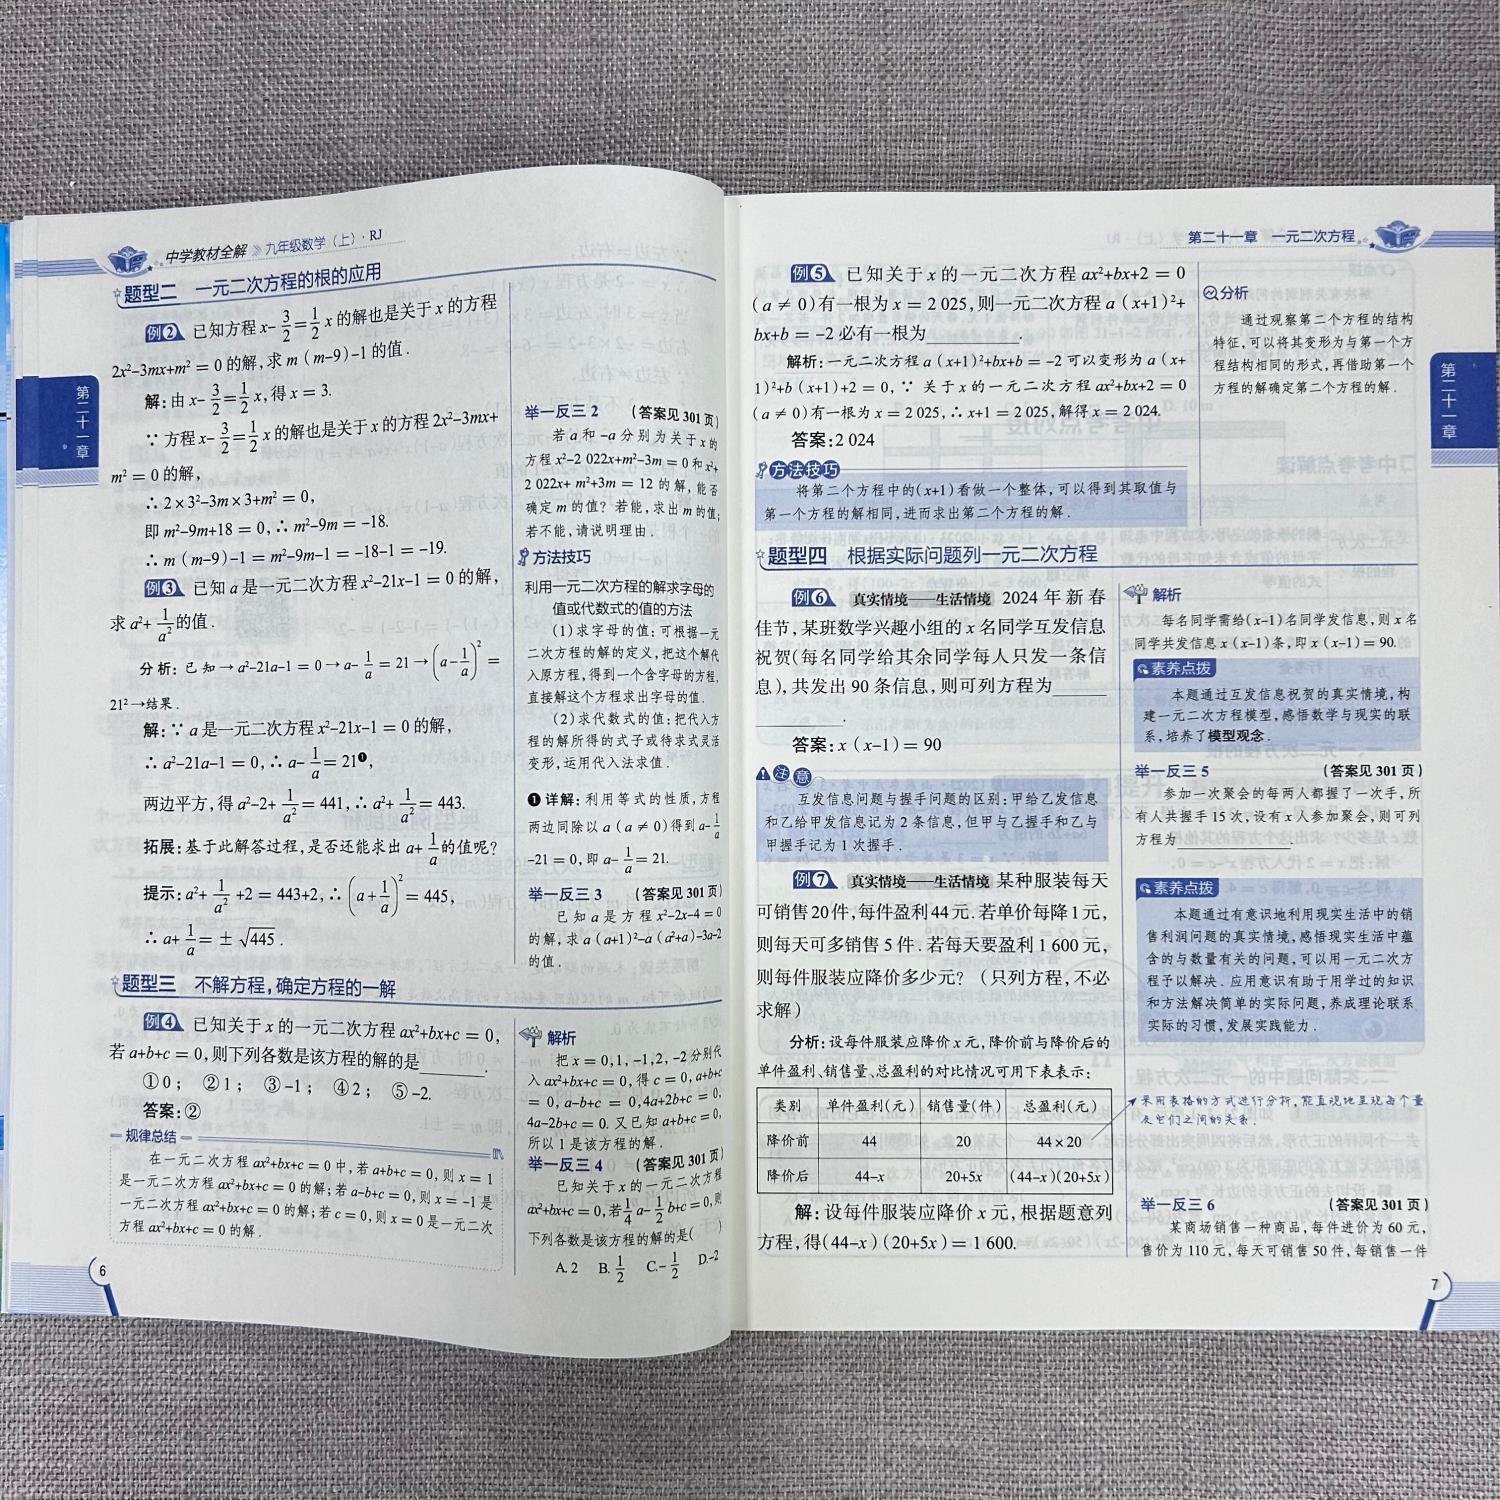 中学教材全解 九年级数学（上）·RJ
题型二 一元二次方程的根的应用
例2 已知方程x-3/2=1/2x的解也是关于x的方程
2x²-3mx+m²=0的解,求m(m-9)-1的值.
解:由x-3/2=1/2x,得x=3.
∵方程x-3/2=1/2x的解也是关于x的方程2x²-3mx+
m²=0的解,
∴2×3²-3m×3+m²=0,
即m²-9m+18=0,∴m²-9m=-18.
∴m(m-9)-1=m²-9m-1=-18-1=-19.
例3 已知a是一元二次方程x²-21x-1=0的解,
求a²+1/a²的值.
分析:已知→a²-21a-1=0→a-1/a=21→(a-1/a)²=
21²→结果.
解:∵a是一元二次方程x²-21x-1=0的解,
∴a²-21a-1=0,∴a-1/a=21❶,
两边平方,得a²-2+1/a²=441,∴a²+1/a²=443.
拓展:基于此解答过程,是否还能求出a+1/a的值呢?
提示:a²+1/a²+2=443+2,∴(a+1/a)²=445,
∴a+1/a=±√445.
题型三 不解方程,确定方程的一解
例4 已知关于x的一元二次方程ax²+bx+c=0,
若a+b+c=0,则下列各数是该方程的解的是______.
①0; ②1; ③-1; ④2; ⑤-2.
答案:②
规律总结
在一元二次方程ax²+bx+c=0中,若a+b+c=0,则x=1
是一元二次方程ax²+bx+c=0的解;若a-b+c=0,则x=-1是
一元二次方程ax²+bx+c=0的解;若c=0,则x=0是一元二次
方程ax²+bx+c=0的解.
第二十一章
6
举一反三2 (答案见301页)
若a和-a分别为关于x的
方程x²-2 022x+m²-3m=0和x²+
2 022x+m²+3m=12的解,能否
确定m的值?若能,求出m的值;
若不能,请说明理由.
方法技巧
利用一元二次方程的解求字母的
值或代数式的值的方法
(1)求字母的值:可根据一元
二次方程的解的定义,把这个解代
入原方程,得到一个含字母的方程,
直接解这个方程求出字母的值.
(2)求代数式的值:把代入方
程的解所得的式子或待求式灵活
变形,运用代入法求值.
❶详解:利用等式的性质,方程
两边同除以a(a≠0)得到a-1/a
-21=0,即a-1/a=21.
举一反三3 (答案见301页)
已知a是方程x²-2x-4=0
的解,求a(a+1)²-a(a²+a)-3a-2
的值.
解析
把x=0,1,-1,2,-2分别代
入ax²+bx+c=0,得c=0,a+b+c
=0,a-b+c=0,4a+2b+c=0,
4a-2b+c=0.又已知a+b+c=0,
所以1是该方程的解.
举一反三4 (答案见301页)
已知关于x的一元二次方程
ax²+bx+c=0,若1/4a-1/2b+c=0,则
下列各数是该方程的解的是( )
A.2 B.1/2 C.-1/2 D.-2
第二十一章 一元二次方程
例5 已知关于x的一元二次方程ax²+bx+2=0
(a≠0)有一根为x=2 025,则一元二次方程a(x+1)²+
bx+b=-2必有一根为________.
解析:一元二次方程a(x+1)²+bx+b=-2可以变形为a(x+
1)²+b(x+1)+2=0,∵关于x的一元二次方程ax²+bx+2=0
(a≠0)有一根为x=2 025,∴x+1=2 025,解得x=2 024.
答案:2 024
方法技巧
将第二个方程中的(x+1)看做一个整体,可以得到其取值与
第一个方程的解相同,进而求出第二个方程的解.
分析
通过观察第二个方程的结构
特征,可以将其变形为与第一个方
程结构相同的形式,再借助第一个
方程的解确定第二个方程的解.
题型四 根据实际问题列一元二次方程
例6 真实情境——生活情境 2024年新春
佳节,某班数学兴趣小组的x名同学互发信息
祝贺(每名同学给其余同学每人只发一条信
息),共发出90条信息,则可列方程为______
________.
答案:x(x-1)=90
注意
互发信息问题与握手问题的区别:甲给乙发信息
和乙给甲发信息记为2条信息,但甲与乙握手和乙与
甲握手记为1次握手.
例7 真实情境——生活情境 某种服装每天
可销售20件,每件盈利44元.若单价每降1元,
则每天可多销售5件.若每天要盈利1 600元,
则每件服装应降价多少元?(只列方程,不必
求解)
分析:设每件服装应降价x元,降价前与降价后的
单件盈利、销售量、总盈利的对比情况可用下表表示:
类别 单件盈利(元) 销售量(件) 总盈利(元)
降价前 44 20 44×20
降价后 44-x 20+5x (44-x)(20+5x)
解:设每件服装应降价x元,根据题意列
方程,得(44-x)(20+5x)=1 600.
解析
每名同学需给(x-1)名同学发信息,则x名
同学共发信息x(x-1)条,即x(x-1)=90.
素养点拨
本题通过互发信息祝贺的真实情境,构
建一元二次方程模型,感悟数学与现实的联
系,培养了模型观念.
举一反三5 (答案见301页)
参加一次聚会的每两人都握了一次手,所
有人共握手15次,设有x人参加聚会,则可列
方程为________.
素养点拨
本题通过有意识地利用现实生活中的销
售利润问题的真实情境,感悟现实生活中蕴
含的与数量有关的问题,可以用一元二次方
程予以解决.应用意识有助于用学过的知识
和方法解决简单的实际问题,养成理论联系
实际的习惯,发展实践能力.
采用表格的方式进行分析,能直观地呈现每个量
及它们之间的关系.
举一反三6 (答案见301页)
某商场销售一种商品,每件进价为60元,
售价为110元,每天可销售50件,每销售一件
第二十一章
7